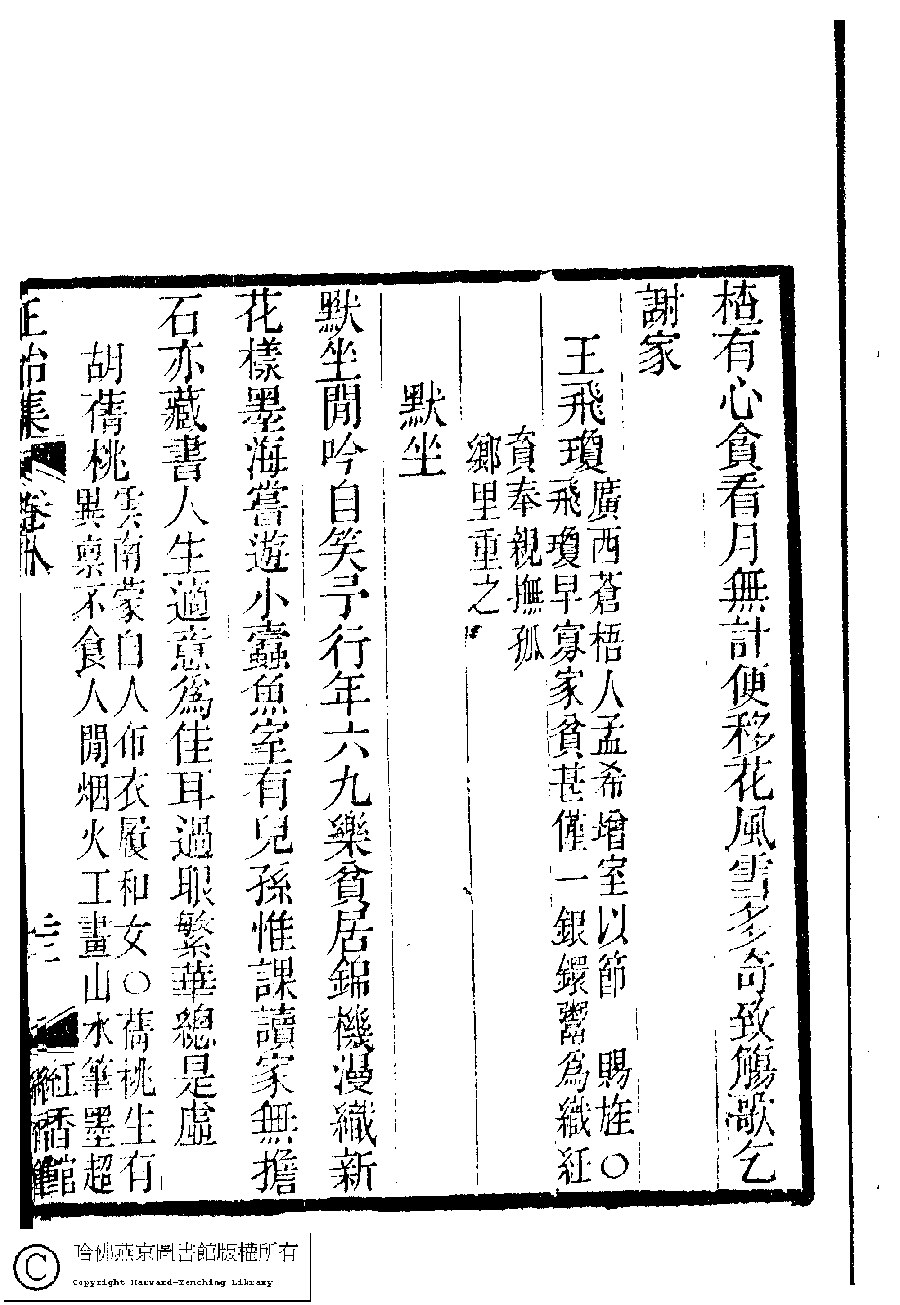 楂有心貪看月無計便移花風雪多奇致觴歌乞
謝家
王飛瓊廣西蒼梧人孟希增室以節 賜旌○
飛瓊早寡家貧甚僅一銀鐶鬻爲織紅
育奉親撫孤
鄉里重之
默坐
默坐閒吟自笑予行年六九樂貧居錦機漫織新
花樣墨海嘗遊小蠹魚室有兒孫惟課讀家無擔
石亦藏書人生適意爲佳耳過眼繁華總是虛
胡蒨桃雲南蒙自人布衣履和女○蒨桃生有
異稟不食人閒烟火工畫山水筆墨超
正始集 卷八 紅香館
哈佛燕京圖書館版權所有
Copyright Harvard-Yenching Library